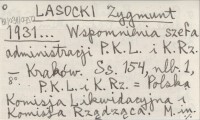 LASOCKI Zygmunt
1931... Wspomnienia szefa
administracji P.K.L. i K.Rz.
– Kraków. Ss. 154, nlb. 1,
8° P.K.L. i K.Rz. = Polska
Komisja Likwidacyjna i
Komisja Rządząca. M.in.